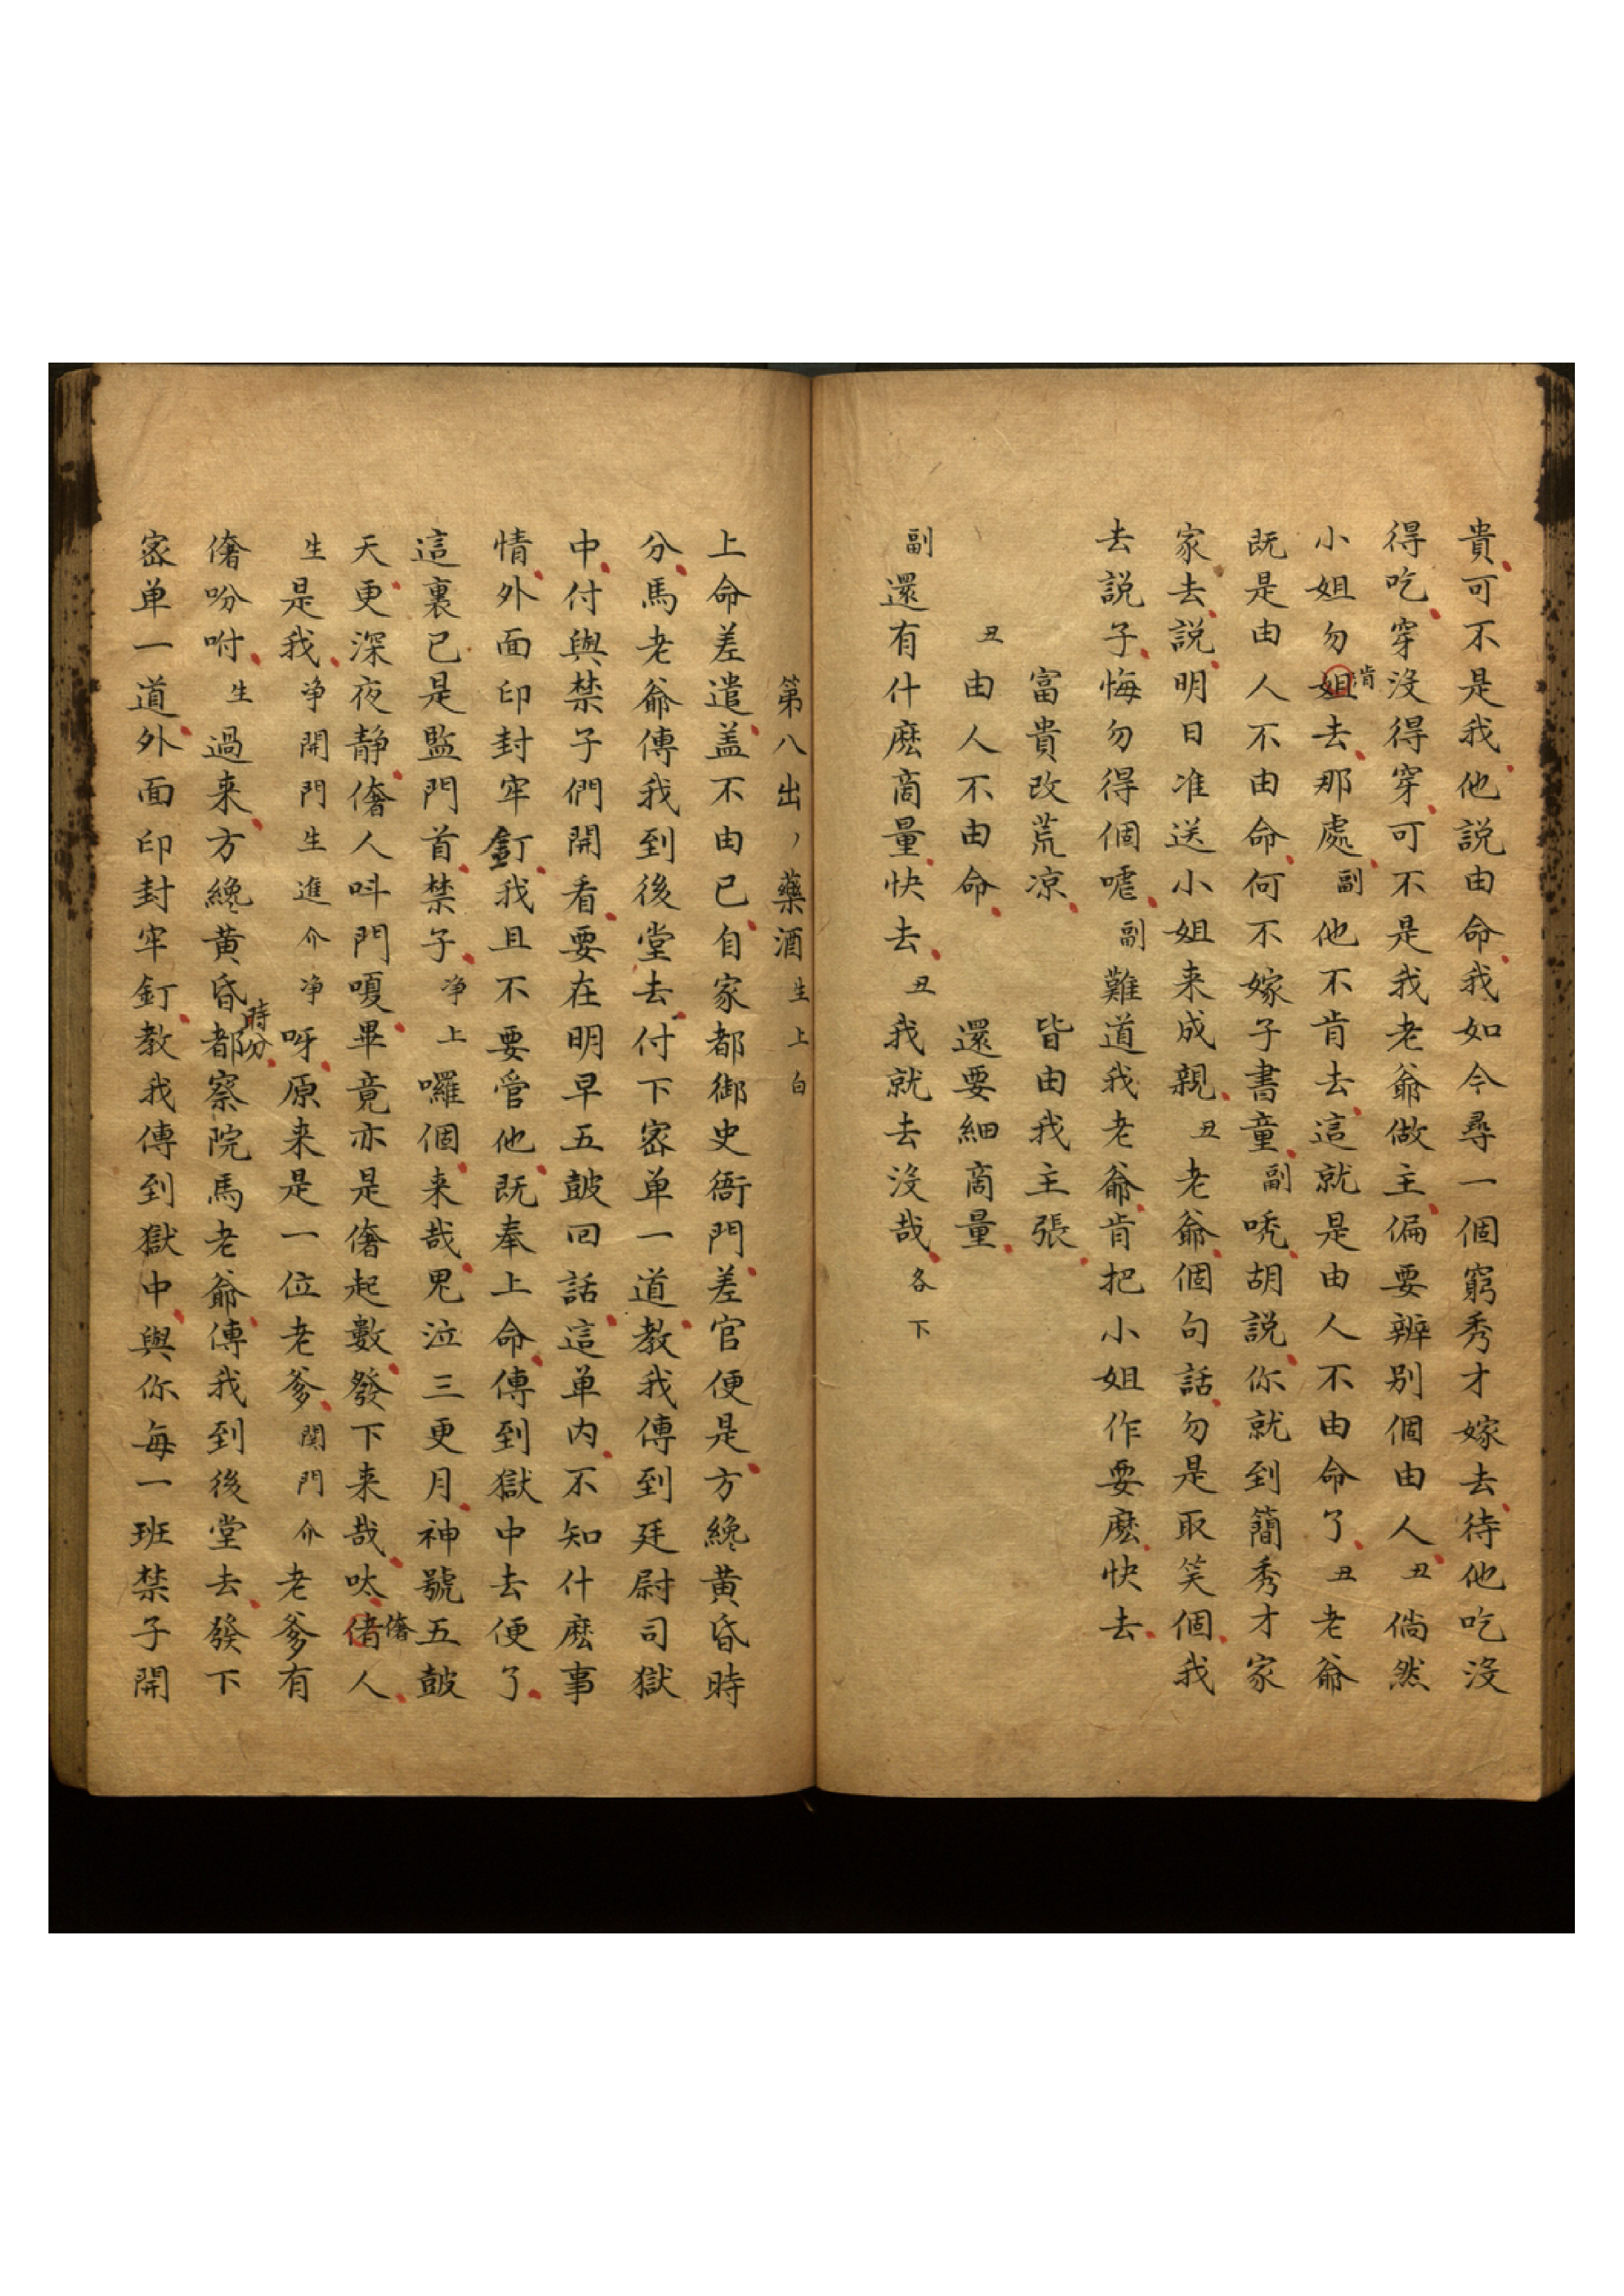 貴可不是我他説由命我如今尋一個窮秀才嫁去待他吃沒
得吃穿沒得穿可不是我老爺做主偏要辨别個由人丑倘然
小姐勿姐肯去那處副他不肯去這就是由人不由命了丑老爺
既是由人不由命何不嫁子書童副唬胡説你就到簡秀才家
家去説明日准送小姐来成親丑老爺個句話勿是取笑個我
去説子悔勿得個嘘副難道我老爺肯把小姐作耍麽快去
富貴改荒凉 皆由我主張
丑由人不由命 還要細商量
副還有什麽商量快去丑我就去沒哉各下
第八出丶藥酒生上白
上命差遣盖不由已自家都御史衙門差官便是方纔黄昏時
分馬老爺傳我到後堂去付下宻单一道教我傳到廷尉司獄
中付與禁子們開看要在明早五皷回話這单内不知什麽事
情外面印封牢釘我且不要管他既奉上命傳到獄中去便了
這裏已是監門首禁子净上囉個来哉鬼泣三更月神號五皷
天更深夜静㒗人呌門嗄畢竟亦是㒗起數發下来哉呔偖㒗人
生是我净開門生進介净呀原来是一位老爹関門介老爹有
㒗吩咐生過来方纔黄昏時分都察院馬老爺傳我到後堂去發下
宻单一道外面印封牢釘教我傳到獄中與你每一班禁子開